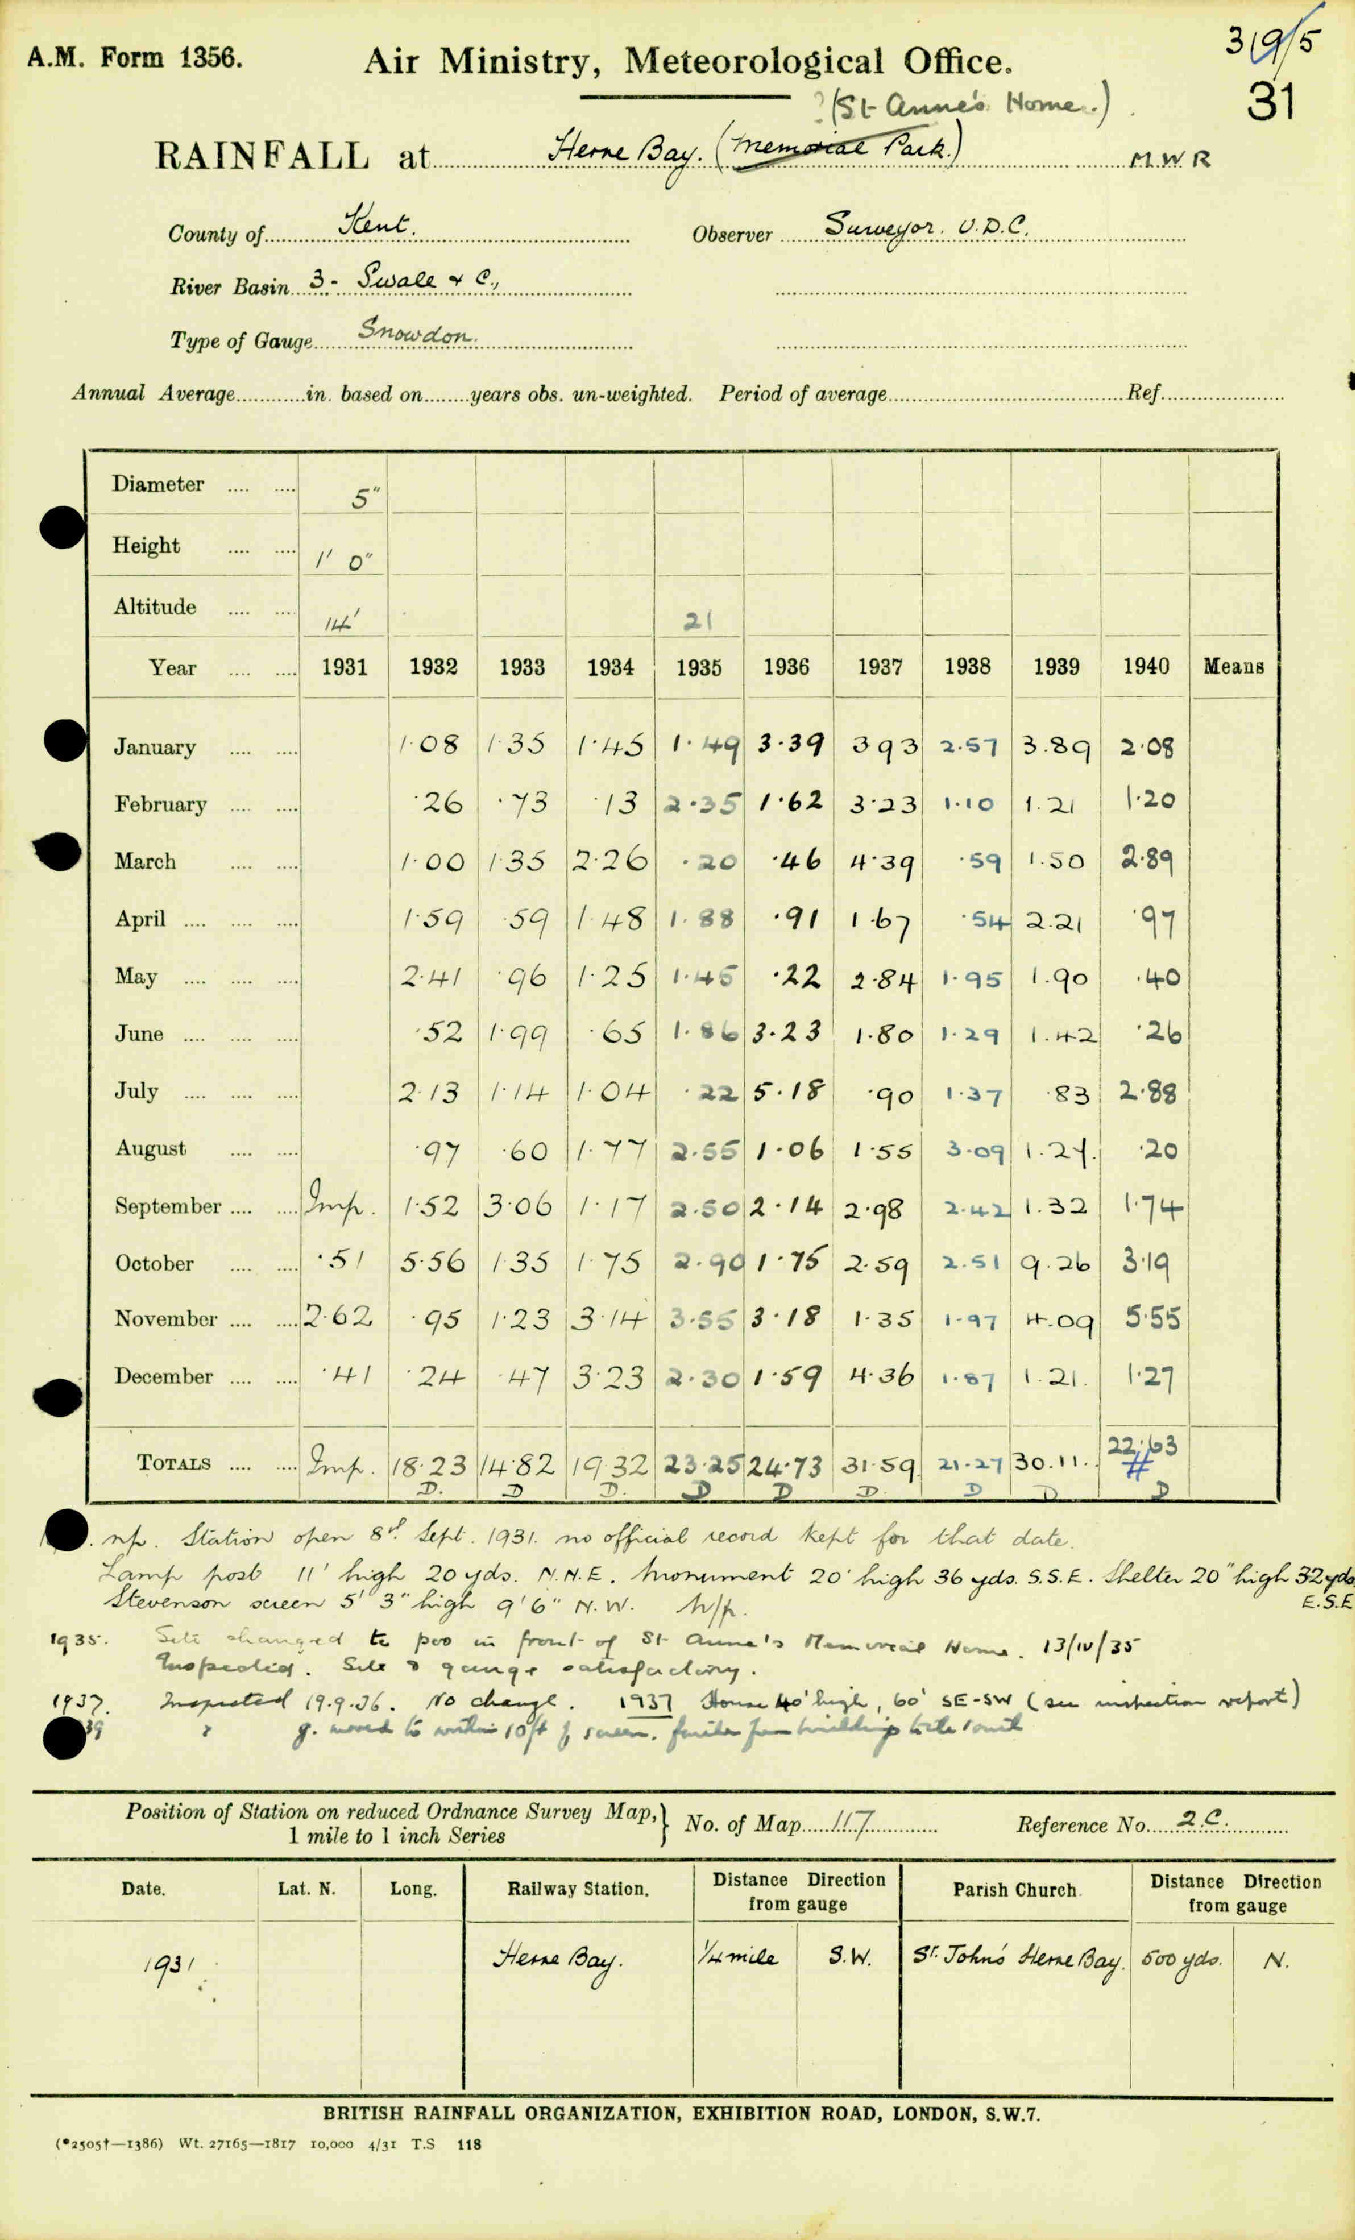 A.M. Form 1356.
Air Ministry, Meteorological Office.
319/5
31
?(St Anne's Home.)
RAINFALL at Herne Bay. (Memorial Park.) M.W.R
County of Kent. Observer Surveyor. U.D.C.
River Basin 3 - Swale & C.,
Type of Gauge Snowdon.
Annual Average in. based on years obs. un-weighted. Period of average Ref.
Diameter .... .... 5"
Height .... .... 1' 0"
Altitude .... .... 14' 21
Year .... .... 1931 1932 1933 1934 1935 1936 1937 1938 1939 1940 Means
January .... .... 1.08 1.35 1.45 1.49 3.39 3 93 2.57 3.89 2.08
February .... .... .26 .73 .13 2.35 1.62 3.23 1.10 1.21 1.20
March .... .... 1.00 1.35 2.26 .20 .46 4.39 .59 1.50 2.89
April .... .... .... 1.59 .59 1.48 1.88 .91 1.67 .54 2.21 .97
May .... .... .... 2.41 .96 1.25 1.45 .22 2.84 1.95 1.90 .40
June .... .... .... .52 1.99 .65 1.86 3.23 1.80 1.29 1.42 .26
July .... .... .... 2.13 1.14 1.04 .22 5.18 .90 1.37 .83 2.88
August .... .... .97 .60 1.77 2.55 1.06 1.55 3.09 1.27. .20
September .... .... Imp. 1.52 3.06 1.17 2.50 2.14 2.98 2.42 1.32 1.74
October .... .... .51 5.56 1.35 1.75 2.90 1.75 2.59 2.51 9.26 3.19
November .... .... 2.62 .95 1.23 3.14 3.55 3.18 1.35 1.97 4.09 5.55
December .... .... .41 .24 .47 3.23 2.30 1.59 4.36 1.87 1.21. 1.27
TOTALS .... .... Imp. 18.23 14.82 19.32 23.25 24.73 31.59 21.27 30.11. 22.63 #
D. D D. D D D. D D D
n/p. Station open 8th Sept. 1931. no official record kept for that date.
Lamp post 11' high 20 yds. N.N.E. Monument 20' high 36 yds. S.S.E. Shelter 20" high 32 yds
Stevenson screen 5' 3" high 9' 6" N.W. n/p. E.S.E
1935. Site changed to pos in front of St Anne's Memorial Home. 13/10/35
Inspected. Site & gauge satisfactory.
1937. Inspected 19.9.36. No change. 1937 House 40' high, 60' SE-SW (see inspection report)
39 g. moved to within 10ft of screen. further from buildings to the south
Position of Station on reduced Ordnance Survey Map,} No. of Map 117 Reference No. 2.C.
1 mile to 1 inch Series
Date. Lat. N. Long. Railway Station. Distance Direction from gauge Parish Church Distance Direction from gauge
1931 Herne Bay. 1/4 mile S.W. St. John's Herne Bay. 500 yds. N.
BRITISH RAINFALL ORGANIZATION, EXHIBITION ROAD, LONDON, S.W.7.
(*2505†—1386) Wt. 27165—1817 10,000 4/31 T.S 118